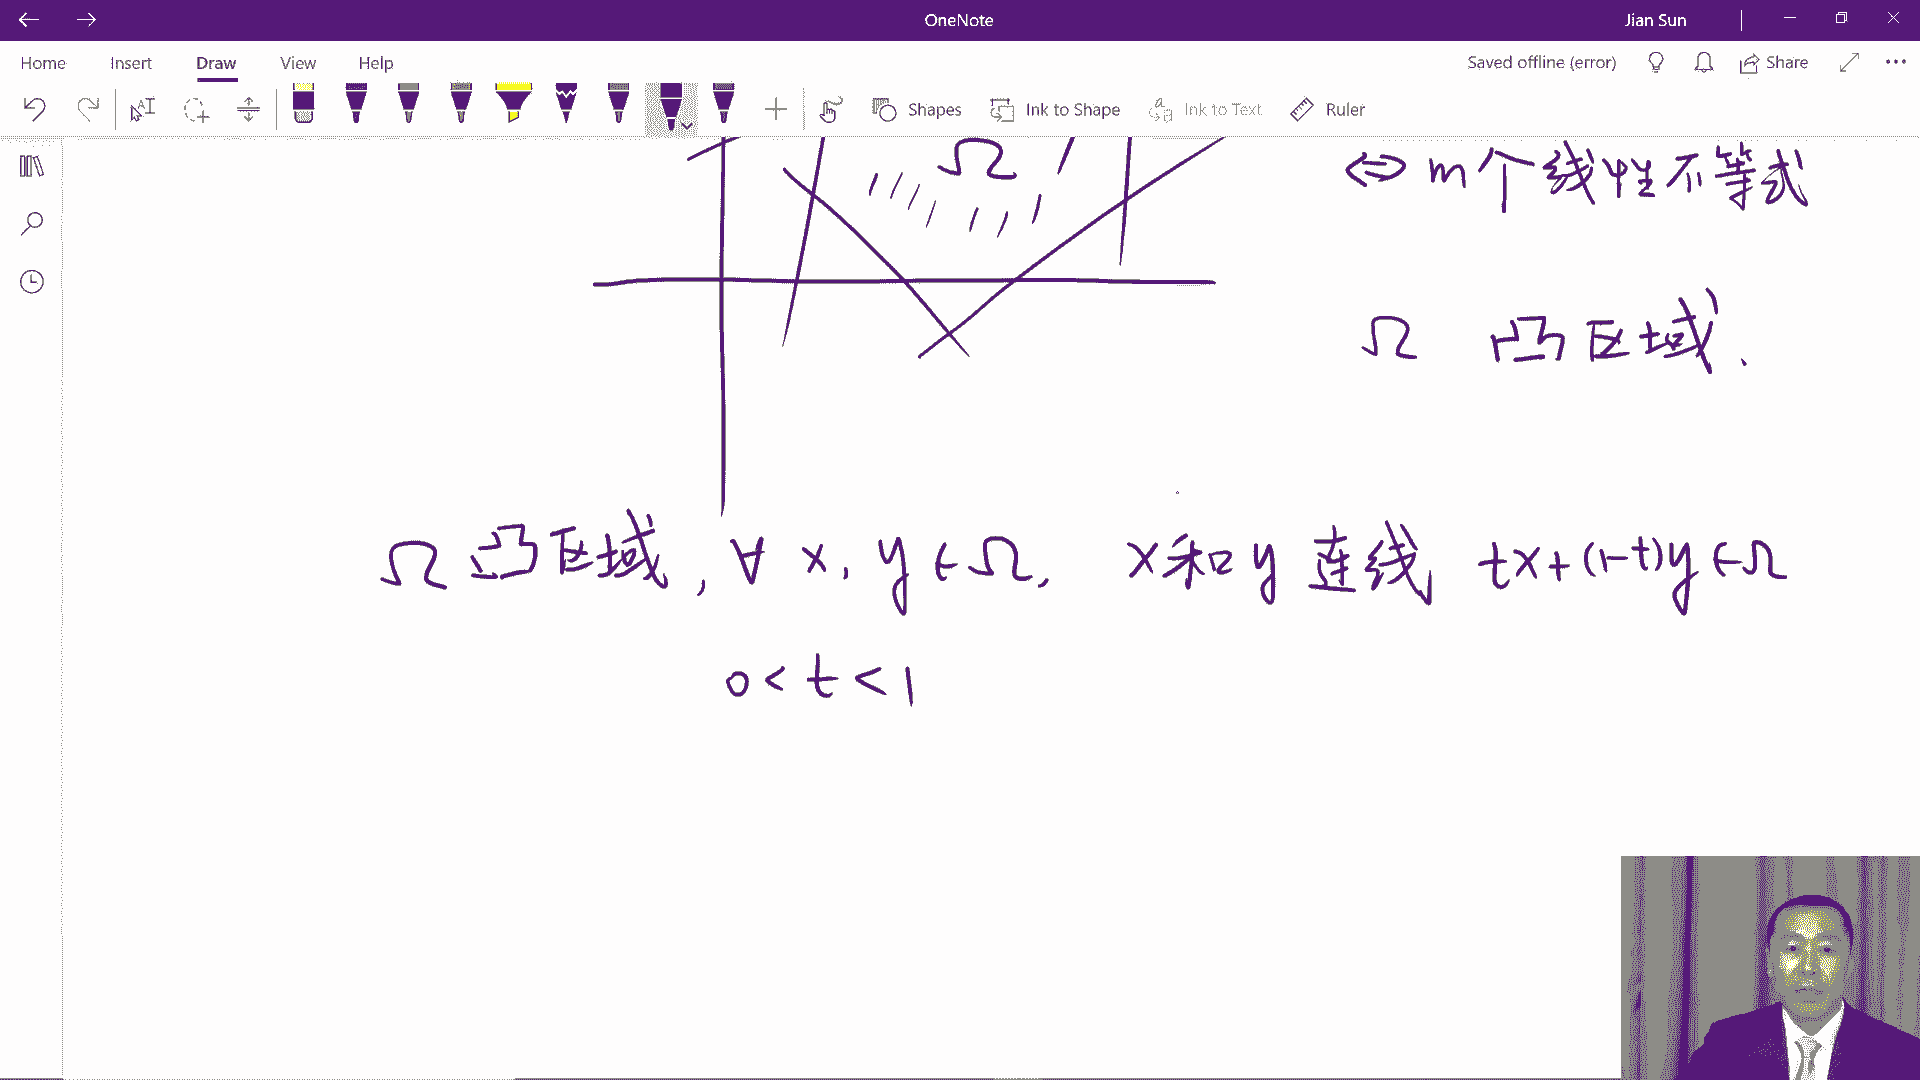 OneNote
Jian Sun
Home Insert Draw View Help
Saved offline (error)
Share
Shapes Ink to Shape Ink to Text Ruler
Ω
⇔ m个线性不等式
Ω 凸区域.
Ω 凸区域, ∀ x, y ∈ Ω, x和y 连线 tx+(1-t)y ∈ Ω
0 < t < 1